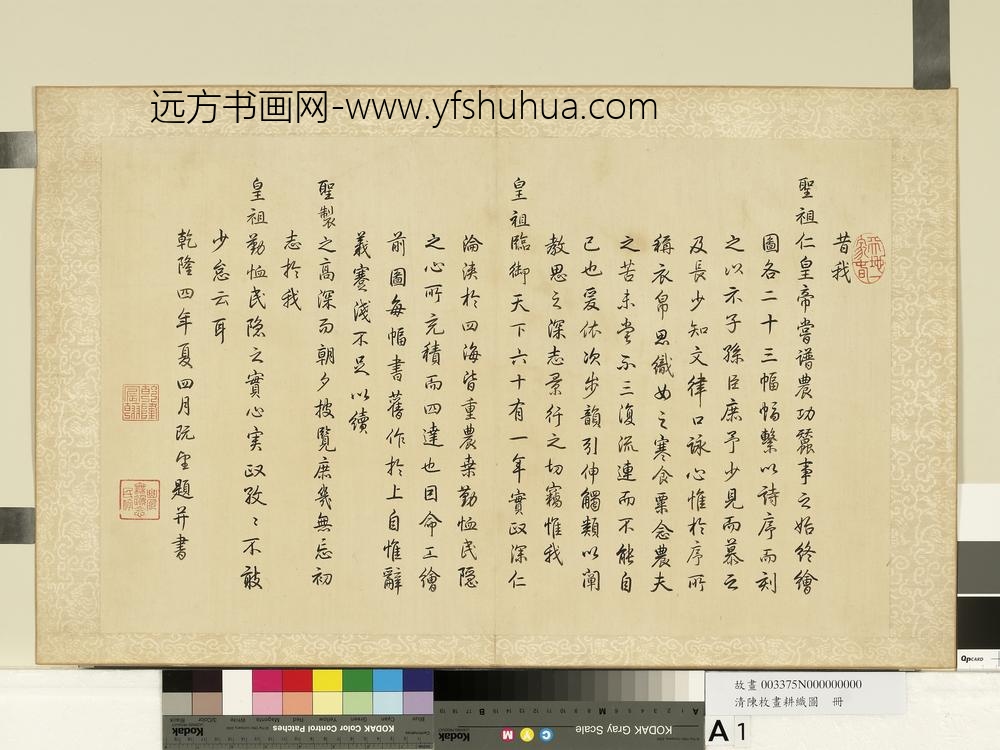 远方书画网-www.yfshuhua.com
昔我
聖祖仁皇帝嘗譜農功蠶事之始終繪
圖各二十三幅幅繫以詩序而刻
之以示子孫臣庶予少見而慕之
及長少知文律口詠心惟於序所
稱衣帛思織女之寒食粟念農夫
之苦未嘗不三復流連而不能自
已也爰依次步韻引伸觸類以闡
教思之深志景行之切竊惟我
皇祖臨御天下六十有一年實政深仁
淪浹於四海皆重農桒勤恤民隠
之心所充積而四達也因命工繪
前圖每幅書舊作於上自惟辭
義蹇淺不足以續
聖製之高深而朝夕披覽庶幾無忘初
志於我
皇祖勤恤民隐之實心実政孜〻不敢
少怠云耳
乾隆四年夏四月既望題并書
KODAK Color Control Patches
Kodak
Blue
Cyan
Green
Yellow
Red
Magenta
White
3/Color
Black
KODAK Gray Scale
Kodak
C
Y
M
A
M
B
QPCARD
故畫 003375N000000000
清陳枚畫耕織圖 冊
A 1